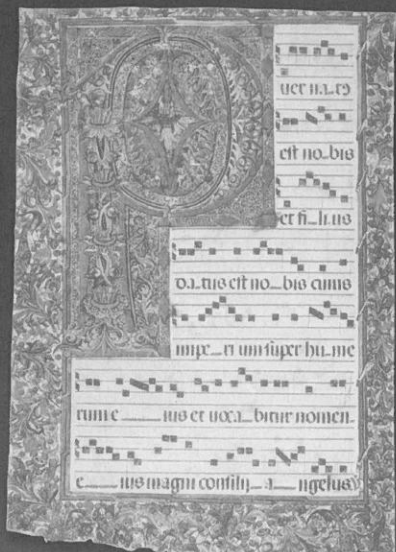 P
uer na_tus
est no_bis
et fi_lius
da_tus est no_bis cuius
impe_ri um super hu_me
rum e___ius et uoca_bitur nomen.
e___ius magni consilij_a_ngelus